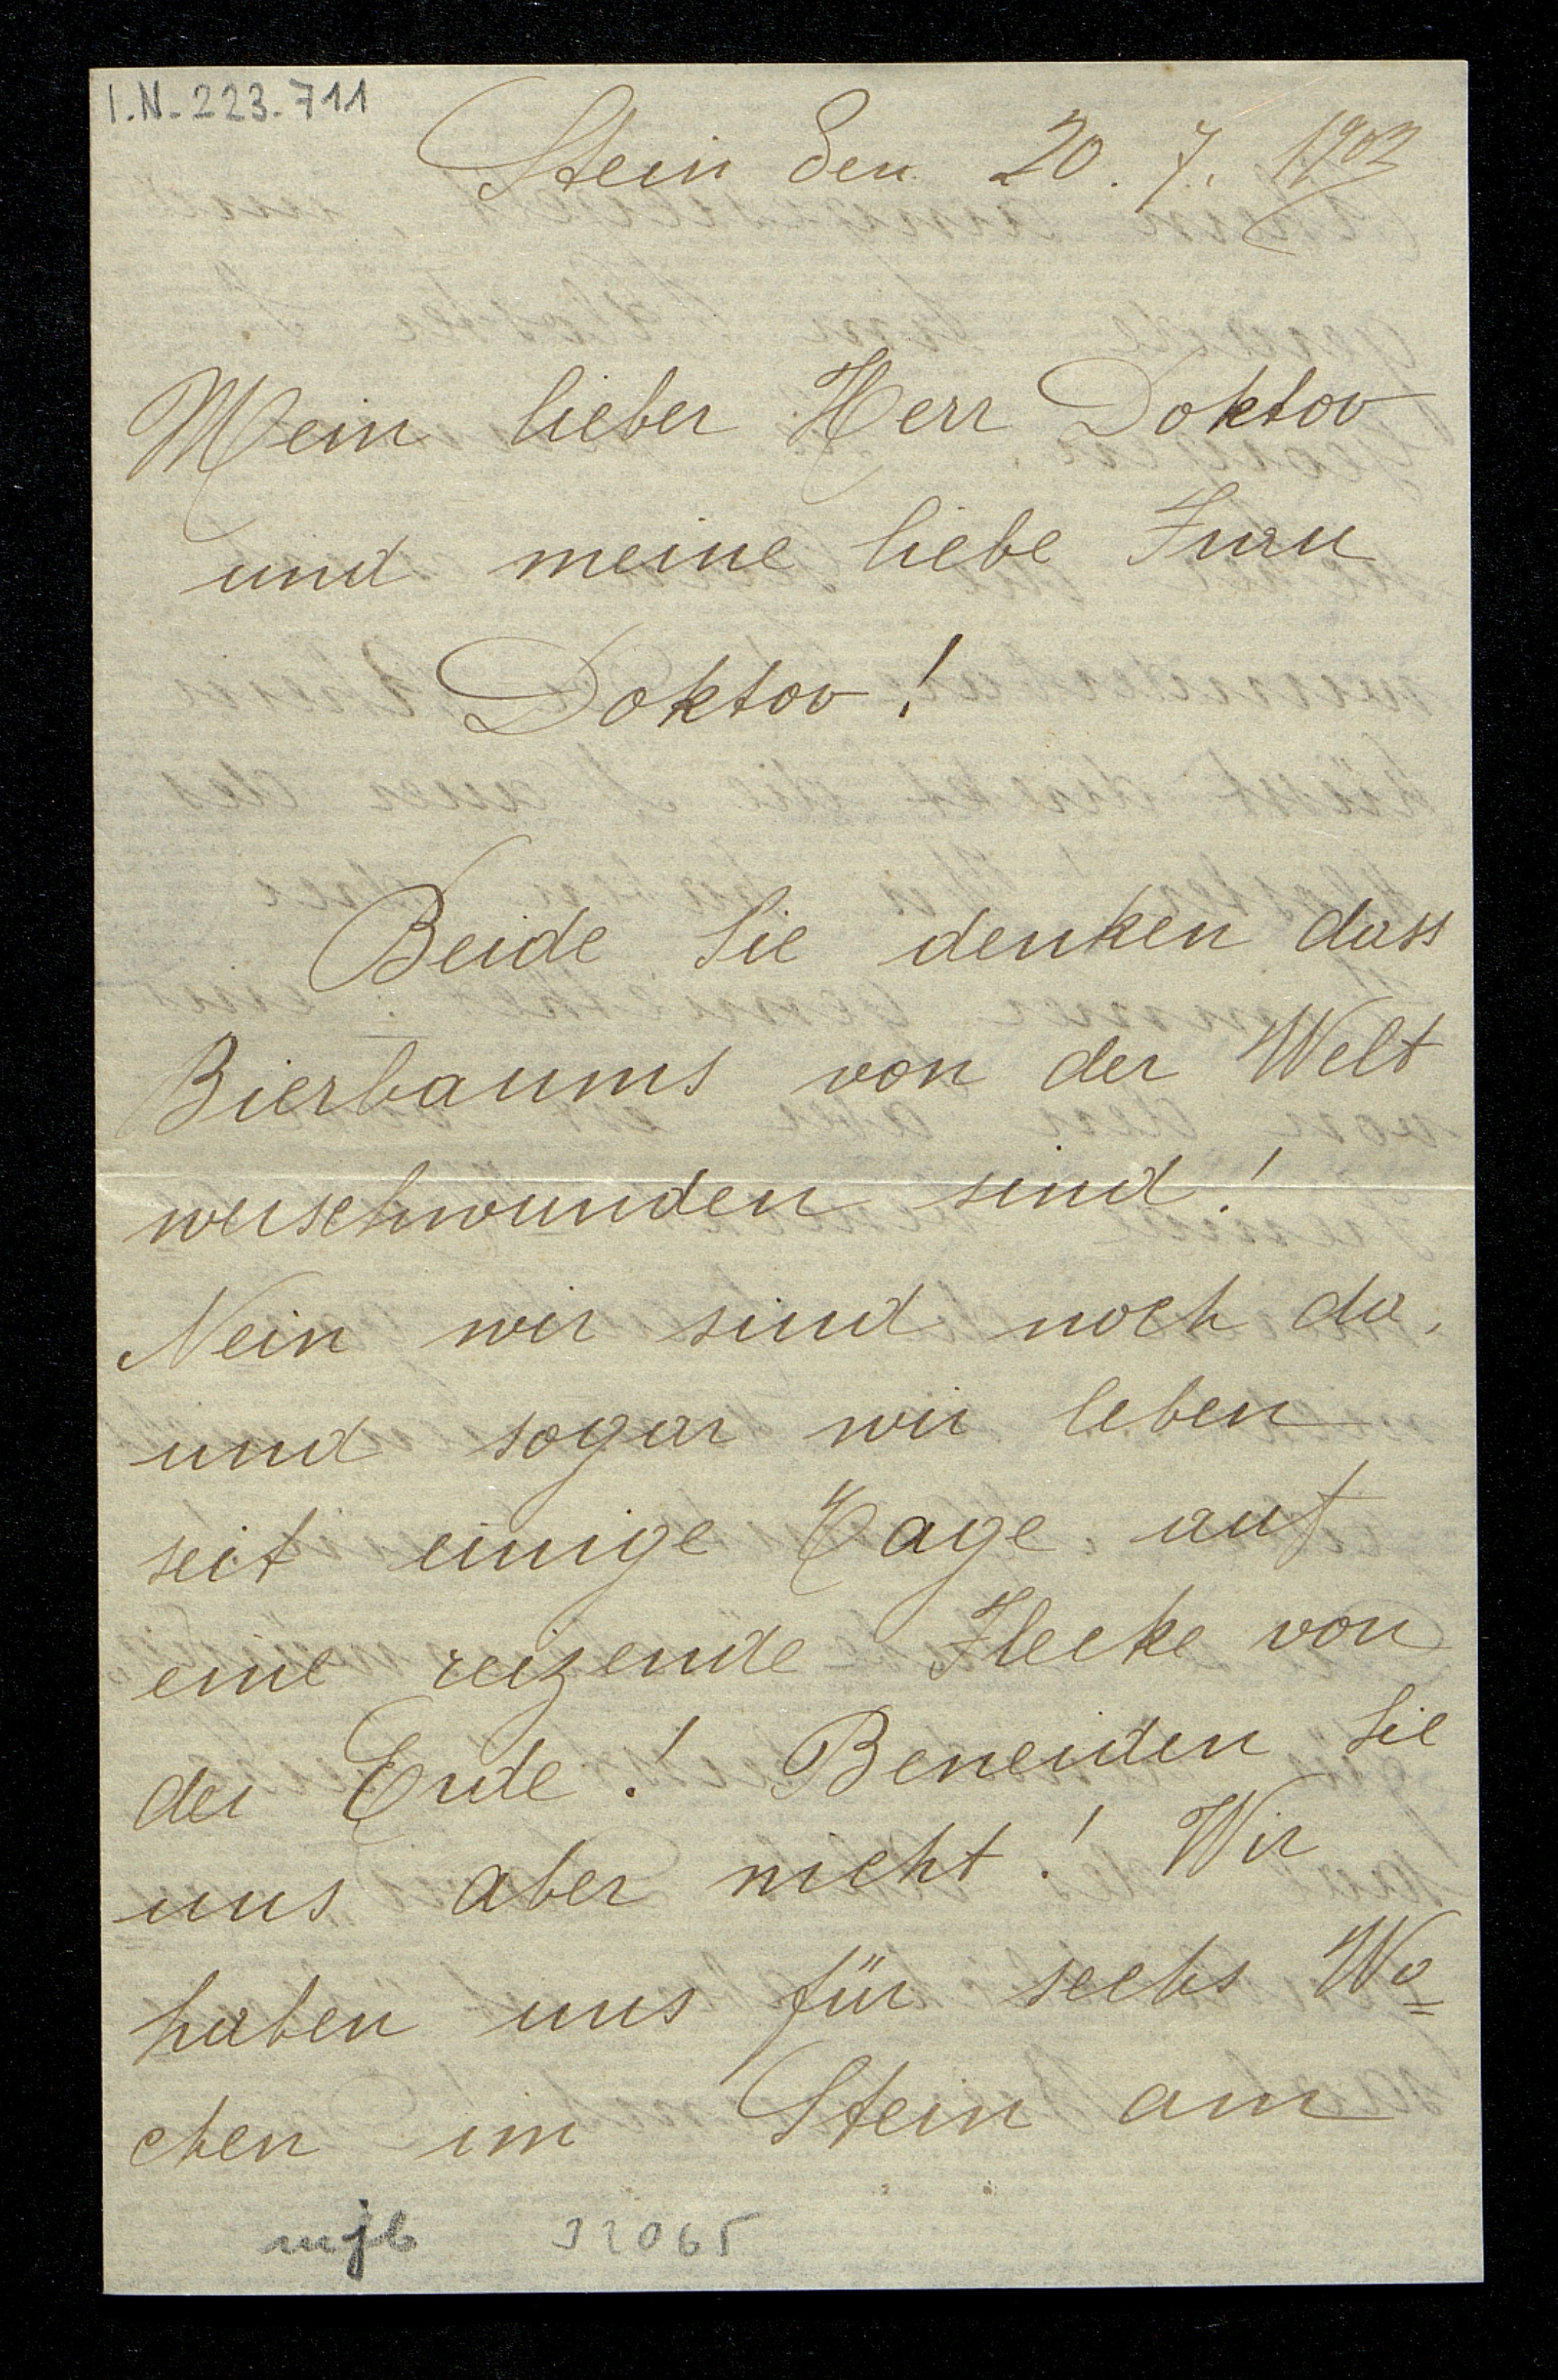 I.N. 223.711
Stein den 20. 7. 1902
Mein lieber Herr Doktor
und meine liebe Frau
Doktor!
Beide Sie denken dass
Bierbaums von der Welt
verschwunden sind!
Nein wir sind noch da,
und sogar wir leben
seit einige Tage auf
eine reizende Flecke von
der Erde! Beneiden Sie
uns aber nicht! Wir
haben uns für sechs Wo=
chen im Stein am